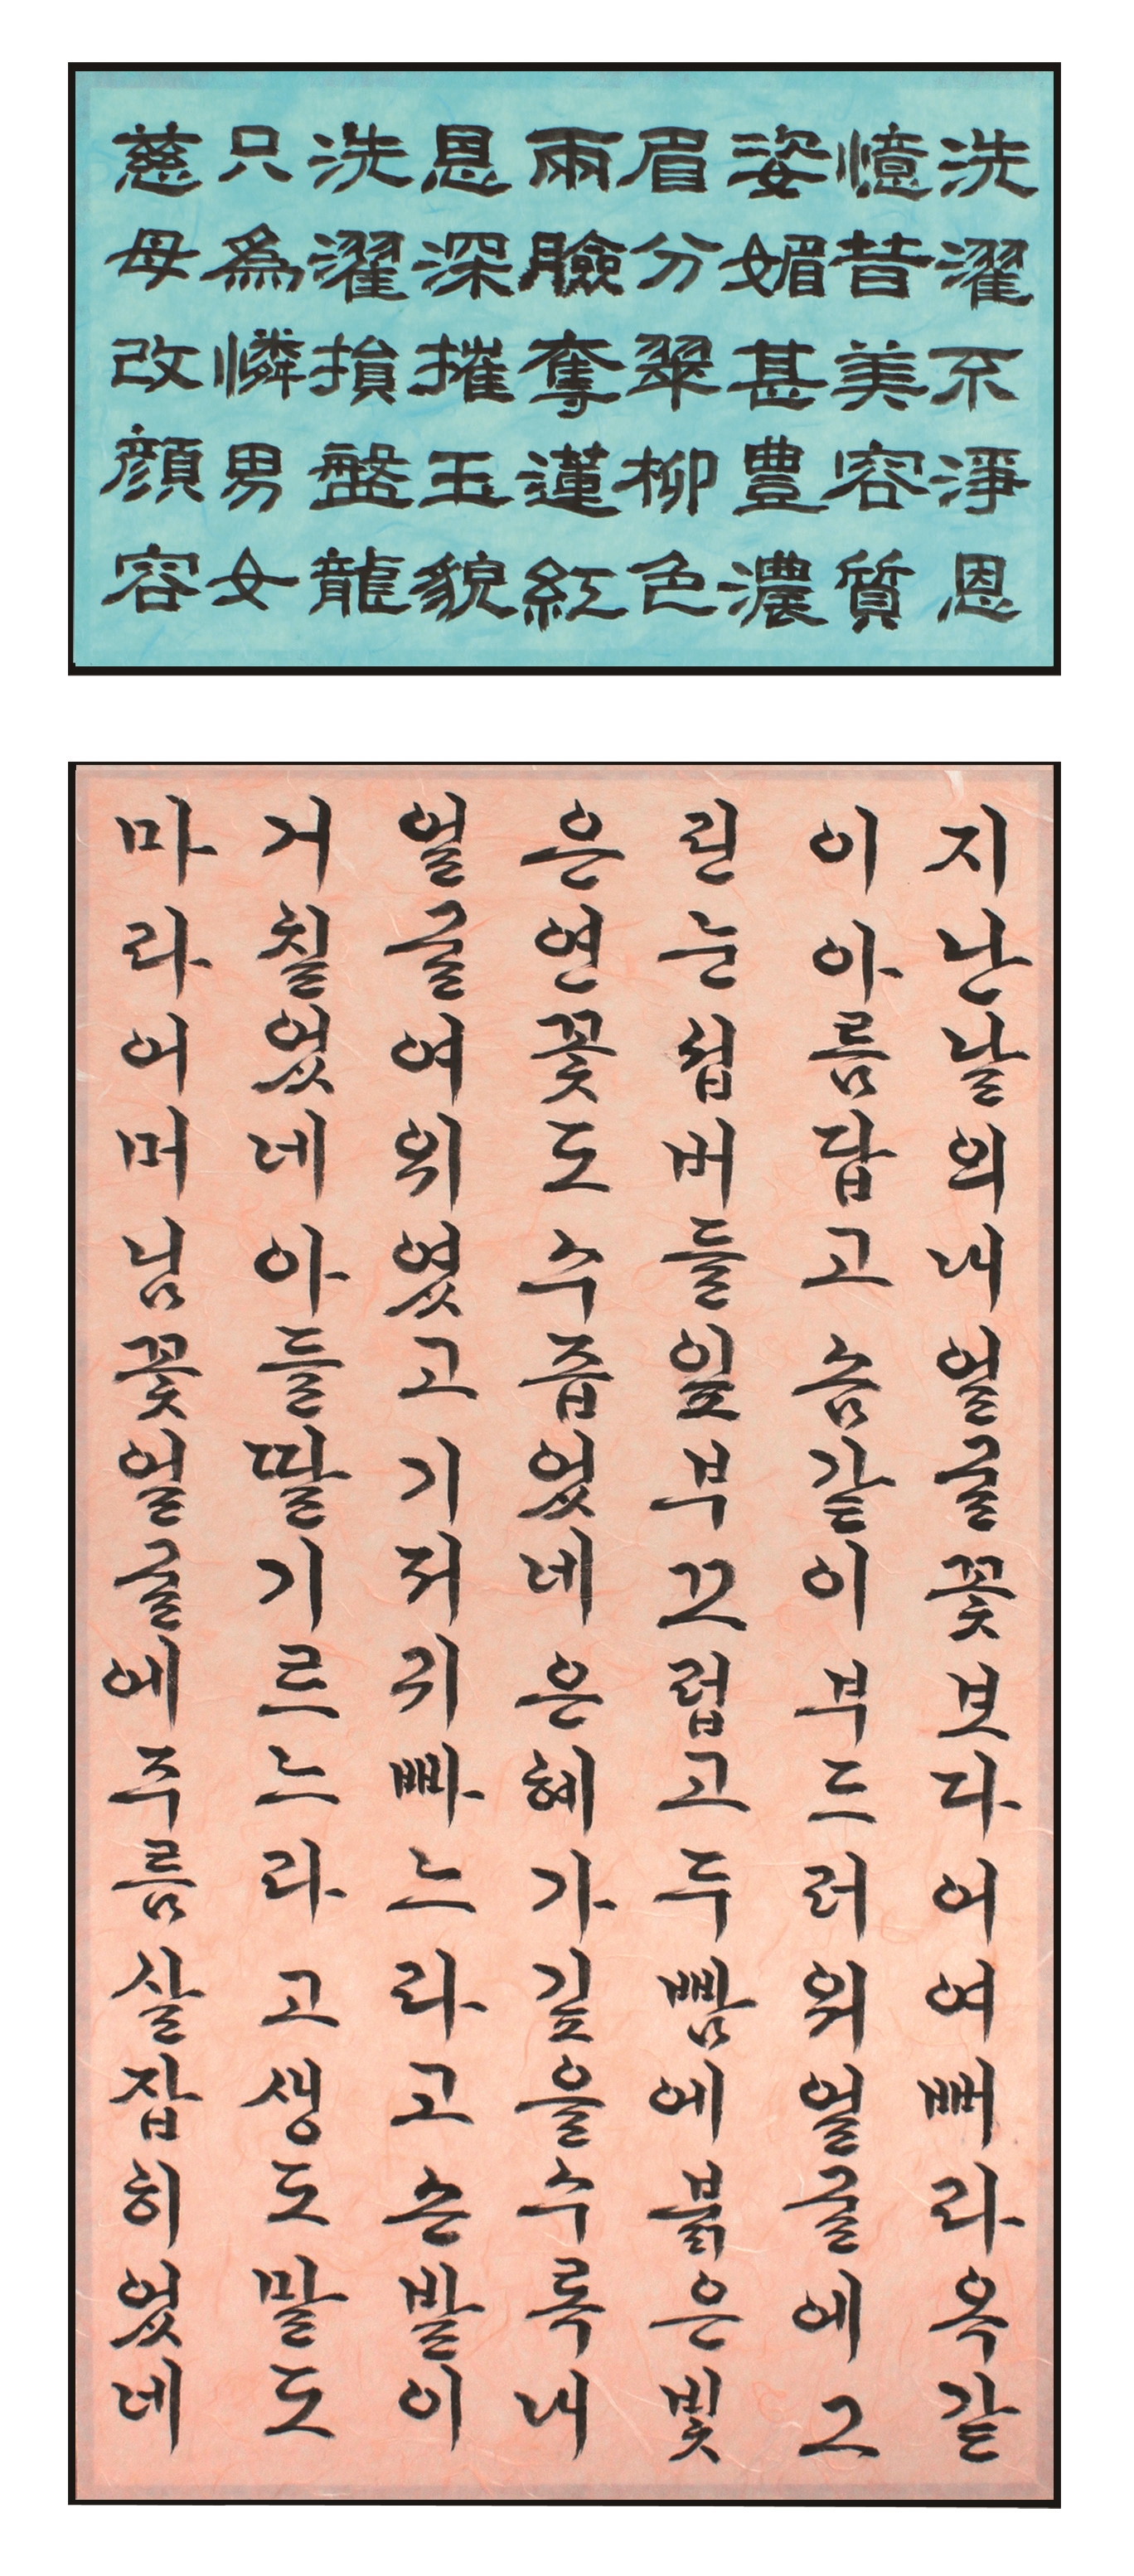 洗濯不淨恩
憶昔美容質
姿媚甚豊濃
眉分翠柳色
兩臉奪蓮紅
恩深摧玉貌
洗濯損盤龍
只爲憐男女
慈母改顔容
지난날의내얼굴꽃보다어여뻐라옥같
이아름답고솜같이부드러워얼굴에그
린눈섭버들잎부끄럽고두뺨에붉은빛
은연꽃도수줍었네은혜가깊을수록내
얼굴여위였고기저귀빠느라고손발이
거칠었네아들딸기르느라고생도말도
마라어머님꽃얼굴에주름살잡히었네